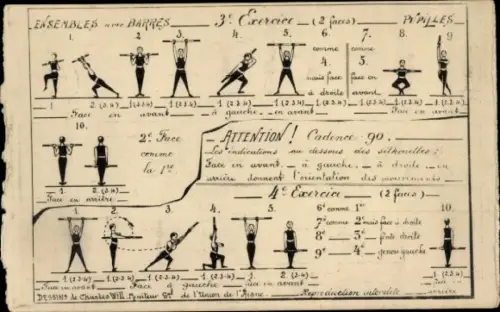 ENSEMBLES avec BARRES — 3e Exercice — (2 faces) PUPILLES
1. 2. 3. 4. 5. 6. 7. 8. 9.
comme comme
4. 5.
mais face face en
à droite avant
1 2.(3.4) 1(2.3.4) 1.(2.3.4) 1 (2.3.4) 1 (2.3.4) 1.(2.3.4) 1(2.3.4) 1.(2.3.4) 1.(2.3.4)
Face en avant — à gauche — en avant
10.
2e Face
comme
la 1re
1. 2.(3.4)
Face en arrière
ATTENTION! Cadence 90.
Les indications au dessous des silhouettes:
Face en avant — à gauche — à droite — en
arrière donnent l'orientation des mouvements
4e Exercice — (2 faces)
1. 2. 3. 4. 5. 10.
6e comme 1er
7e comme 2e mais face à droite
8e — 3e — fente droite
9e — 4e — genou gauche
Face en avant Face à gauche — en avant
DESSINS de Charles Will. Moniteur Gl de l'Union de l'Aisne. Reproduction interdite
arrière